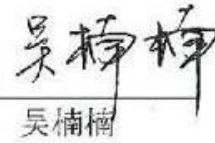 吴楠楠
吴楠楠